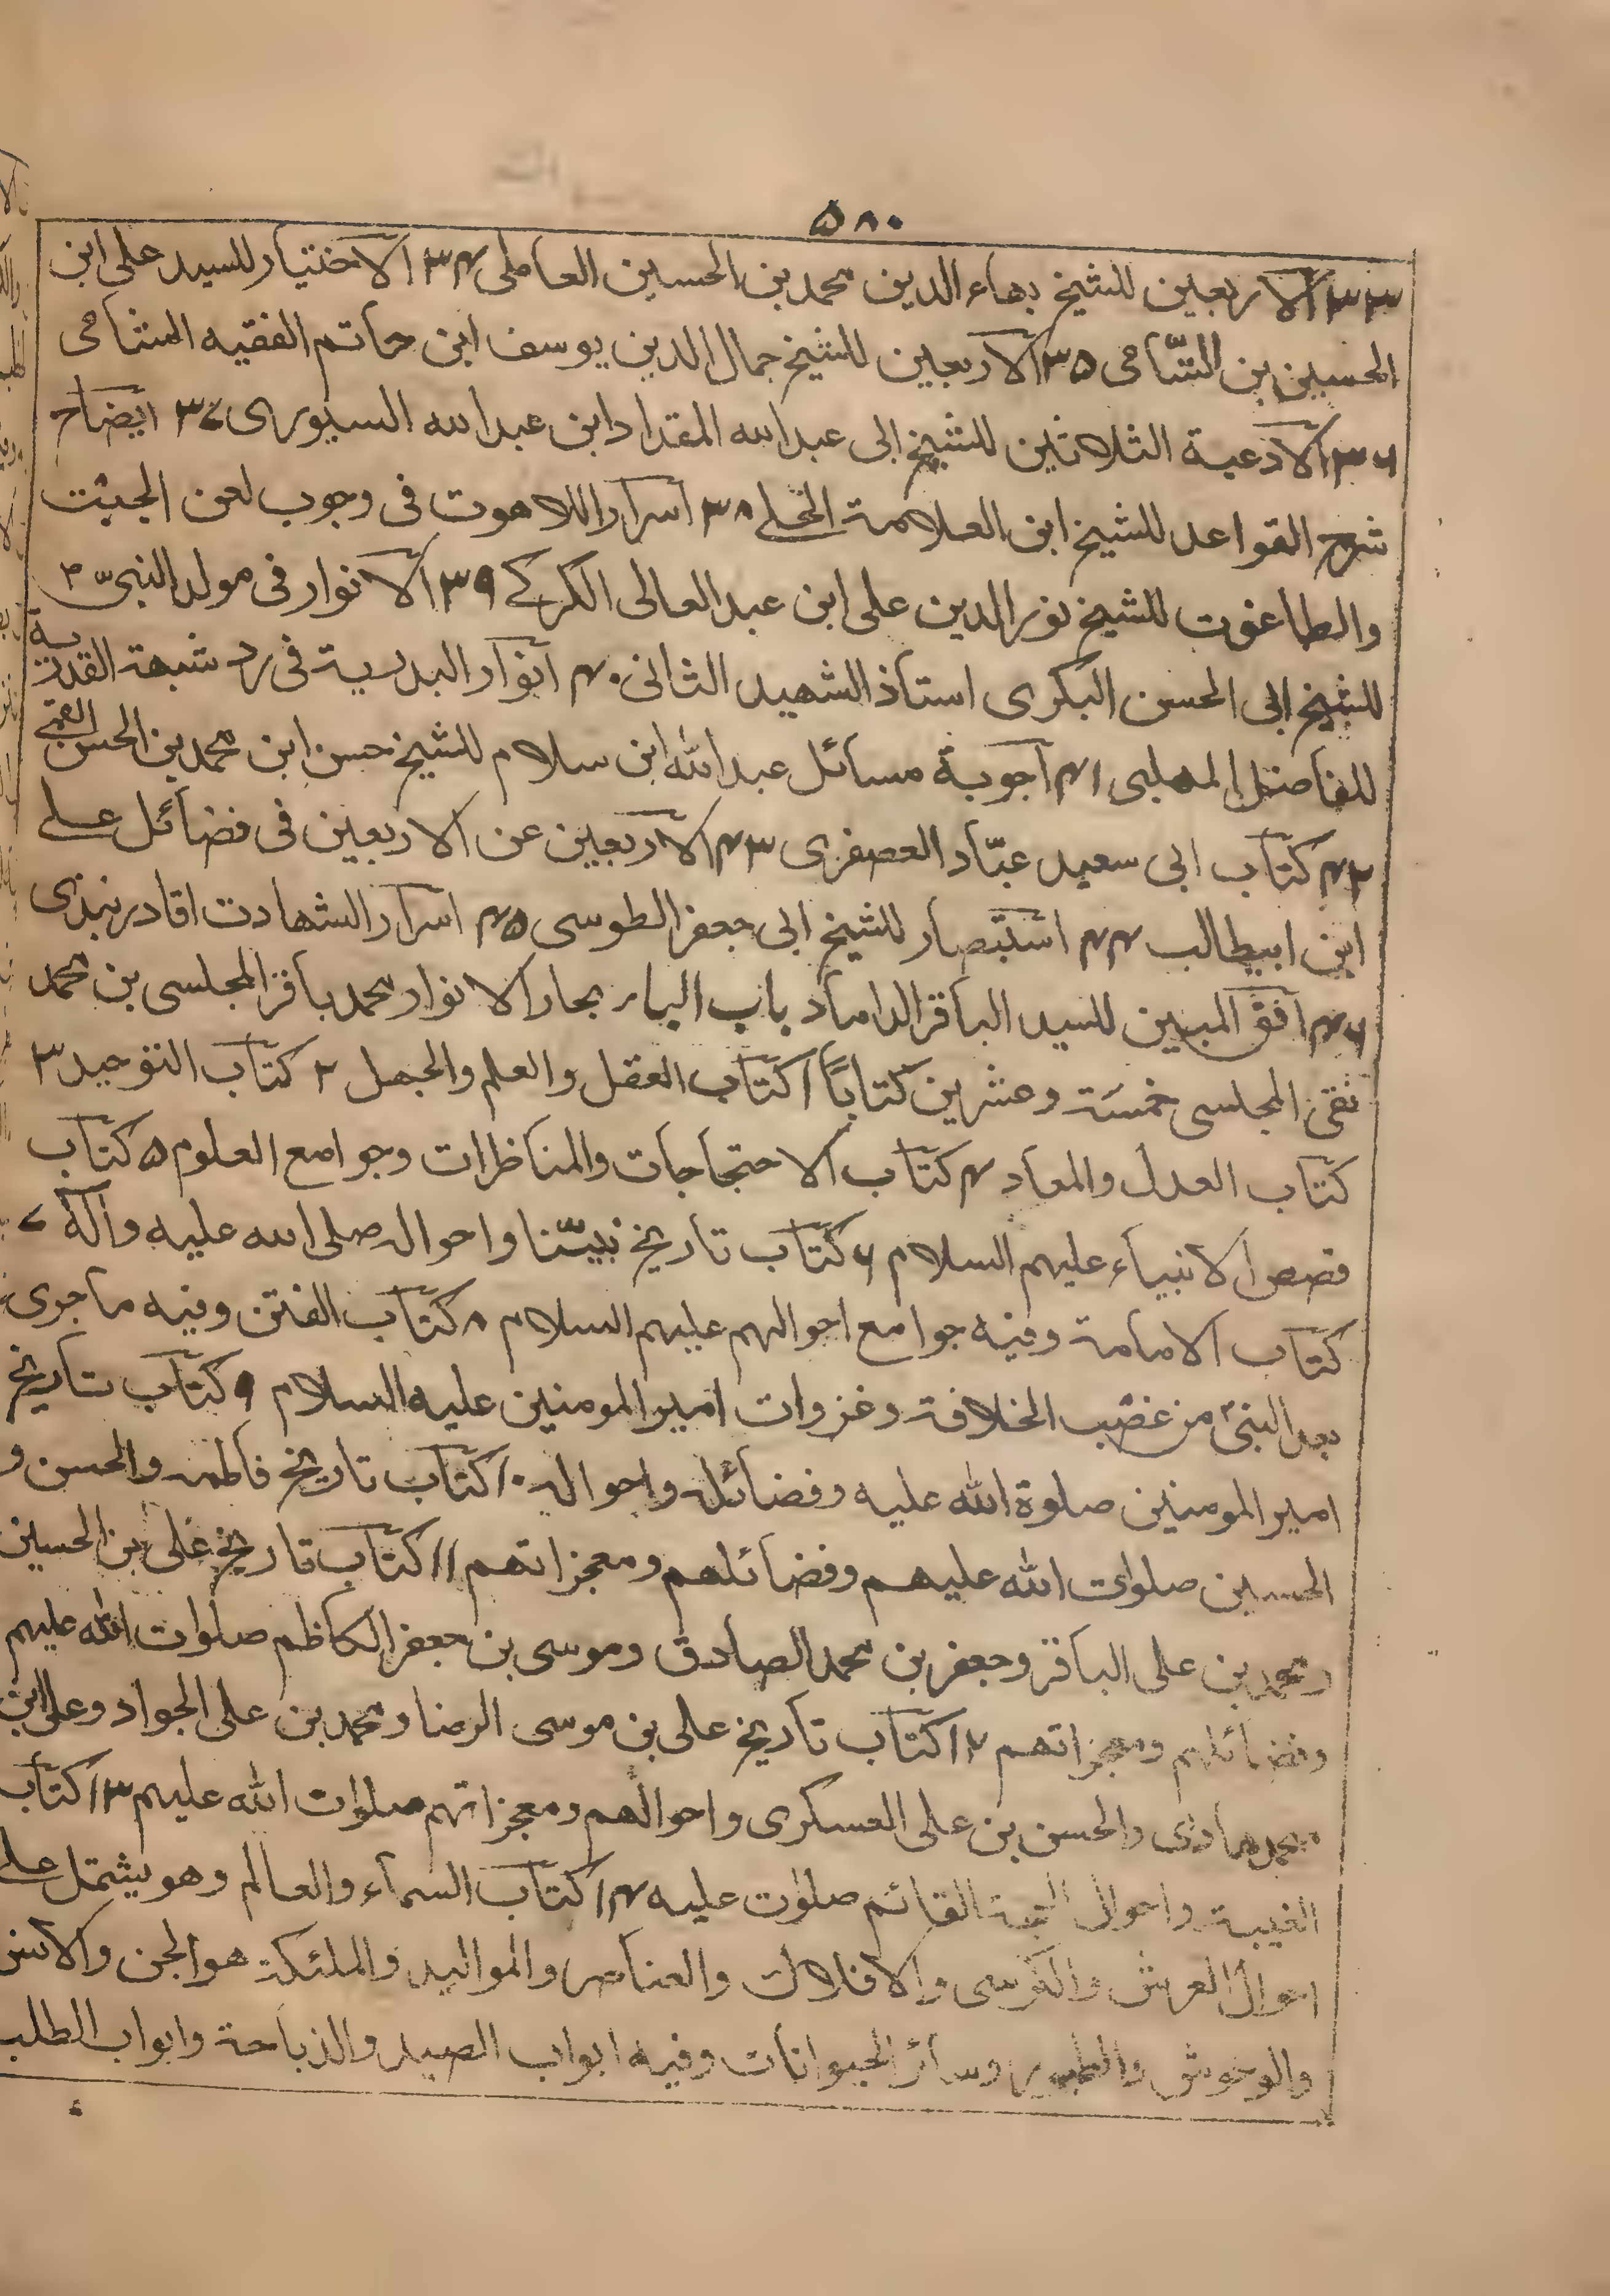 ۵۸۰
۳۳ الاربعین للشیخ بهاء الدین محمد بن الحسین العاملی ۳۴ الاختیار للسید علی ابن
الحسین بن الشّامی ۳۵ الاربعین للشیخ جمال الدین یوسف ابن حاتم الفقیه الشامی
۳۶ الادعیة الثلاثین للشیخ ابی عبد الله المقداد ابن عبد الله السیوری ۳۷ ایضاح
شرح القواعد للشیخ ابن العلامة الحلے ۳۸ اسرار اللاهوت فی وجوب لعن الجبت
والطاغوت للشیخ نور الدین علی ابن عبد العالی الکرکے ۳۹ الانوار فی مولد النبی
للشیخ ابی الحسن البکری استاذ الشهید الثانی ۴۰ انوار البدریة فی رد شبهة القدریة
للفاضل المهلبی ۴۱ اجوبة مسائل عبد الله ابن سلام للشیخ حسن ابن محمد بن الحسن القمی
۴۲ کتاب ابی سعید عبّاد العصفری ۴۳ الاربعین عن الاربعین فی فضائل علے
ابن ابیطالب ۴۴ استبصار للشیخ ابی جعفر الطوسی ۴۵ اسرار الشهادت اقا دربندی
۴۶ افق المبین للسید الباقر الداماد باب الباء بحار الانوار محمد باقر المجلسی بن محمد
تقی المجلسی خمسة وعشرین کتاباً ۱ کتاب العقل والعلم والجهل ۲ کتاب التوحید ۳
کتاب العدل والمعاد ۴ کتاب الاحتجاجات والمناظرات وجوامع العلوم ۵ کتاب
قصص الانبیاء علیهم السلام ۶ کتاب تاریخ نبیّنا واحواله صلی الله علیه واله ۷
کتاب الامامة وفیه جوامع احوالهم علیهم السلام ۸ کتاب الفتن وفیه ماجری
بعد النبی من غصب الخلافة وغزوات امیر المومنین علیه السلام ۹ کتاب تاریخ
امیر المومنین صلوة الله علیه وفضائله واحواله ۱۰ کتاب تاریخ فاطمه والحسن و
الحسین صلوات الله علیهم وفضائلهم ومعجزاتهم ۱۱ کتاب تاریخ علی بن الحسین
ومحمد بن علی الباقر وجعفر بن محمد الصادق وموسی بن جعفر الکاظم صلوات الله علیهم
وفضائلهم ومعجزاتهم ۱۲ کتاب تاریخ علی بن موسی الرضا ومحمد بن علی الجواد وعلی ابن
محمد هادی والحسن بن علی العسکری واحوالهم ومعجزاتهم صلوات الله علیهم ۱۳ کتاب
الغیبة واحوال الحجة القائم صلوٰت علیه ۱۴ کتاب السماء والعالم وهو یشتمل علے
احوال العرش والکرسی والافلاک والعناصر والموالید والملئکة هو الجن والانس
والوحوش والطیور وسائر الحیوانات وفیه ابواب الصید والذباحة وابواب الطلب